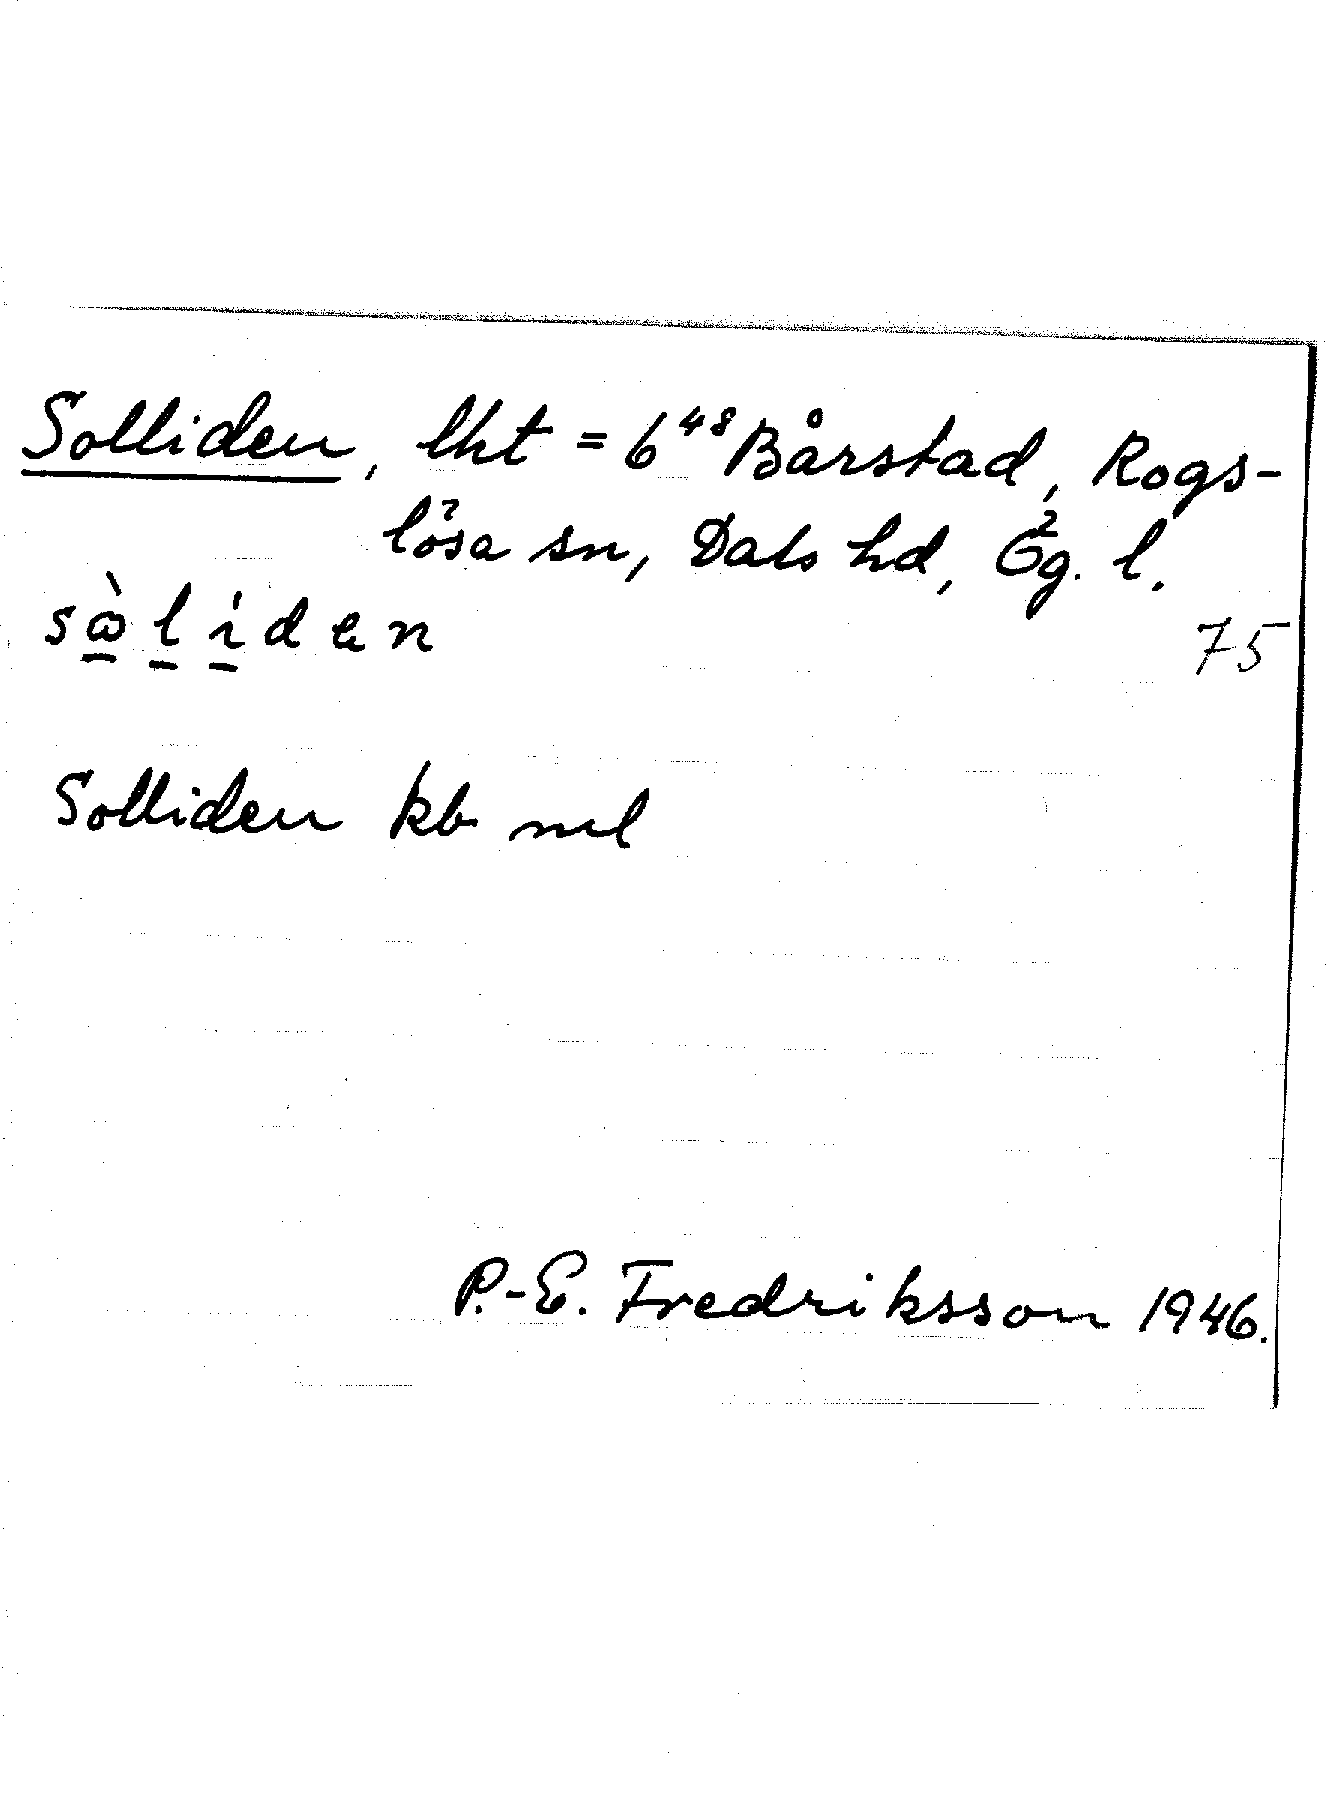 Solliden, lht = 6⁴⁸ Bårstad, Rogs-
lösa sn, Dals hd, Ög. l.
sὼlíden
75
Solliden kb ml
P.-E. Fredriksson 1946.